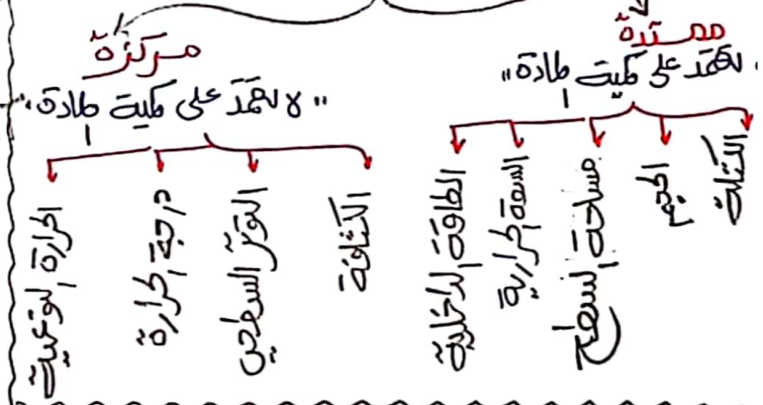 ممتدة
"تعتمد على كمية المادة"
الكتلة
الحجم
مساحة السطح
السعة الحرارية
الطاقة الداخلية
مركزة
"لا تعتمد على كمية المادة"
الكثافة
التوتر السطحي
درجة الحرارة
الحرارة النوعية